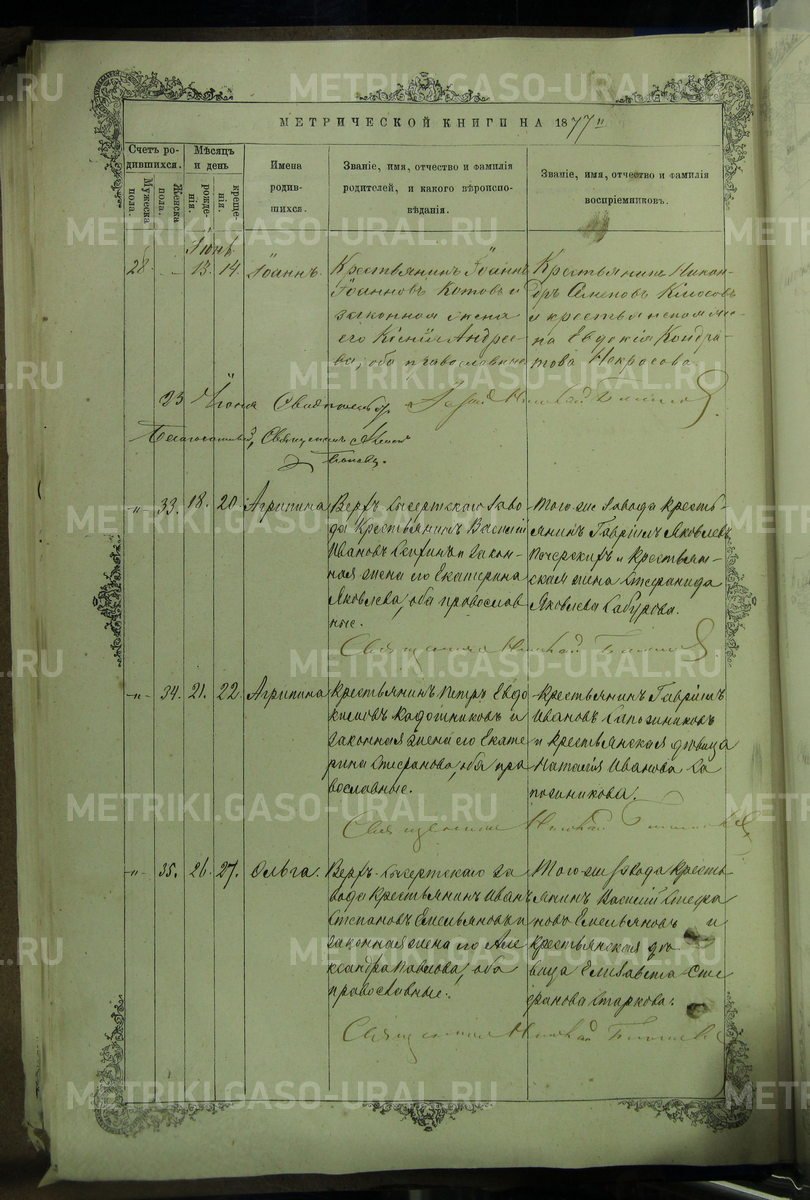 МЕТРИЧЕСКОЙ КНИГИ НА 1877 й
Счетъ ро-
дившихся.
Мужеска
пола.
Женска
пола.
Мѣсяцъ
и день
рожде-
нія.
креще-
нія.
Имена
родив-
шихся.
Званіе, имя, отчество и фамилія
родителей, и какого вѣроиспо-
вѣданія.
Званіе, имя, отчество и фамилія
воспріемниковъ.
Іюнь
28. 13. 14. Іоаннъ.
Крестьянинъ Іоаннъ
Іоанновъ Котовъ и
законная жена
его Ксенія Андрее-
ва, оба православные
Крестьянинъ Никан-
дръ
и крестьянская же-
на Евдокія Кондра-
това Некрасова
23 Іюня
Благочинный, Священникъ
33. 18. 20. Агрипина
Верхъ Сысертскаго заво-
да крестьянинъ Василій
Ивановъ и закон-
ная жена его Екатерина
Яковлева, оба православ-
ные.
Того же завода кресть-
янинъ Гавріилъ Яковлевъ
Печерскихъ и крестьян-
ская жена Стефанида
Яковлева Сабурова.
Священникъ Николай
34. 21. 22. Агрипина
Крестьянинъ Петръ Евдо-
кимовъ Кадошниковъ и
законная жена его Екате
рина Стефанова, оба пра
вославные.
Крестьянинъ Гавріилъ
Ивановъ Сапожниковъ
и крестьянская дѣвица
Наталія Ивановна Са
пожникова.
Священникъ Николай
35. 26. 27. Ольга.
Верхъ-Сысертскаго за
вода крестьянинъ Иванъ
Степановъ Емельяновъ и
законная жена его Але
ксандра Павлова, оба
православные.
Того же завода кресть
янинъ Василій Стефа
новъ Емельяновъ и
крестьянская дѣ-
вица Елизавета Сте
фанова Старкова.
Священникъ Николай
METRIKI.GASO-URAL.RU